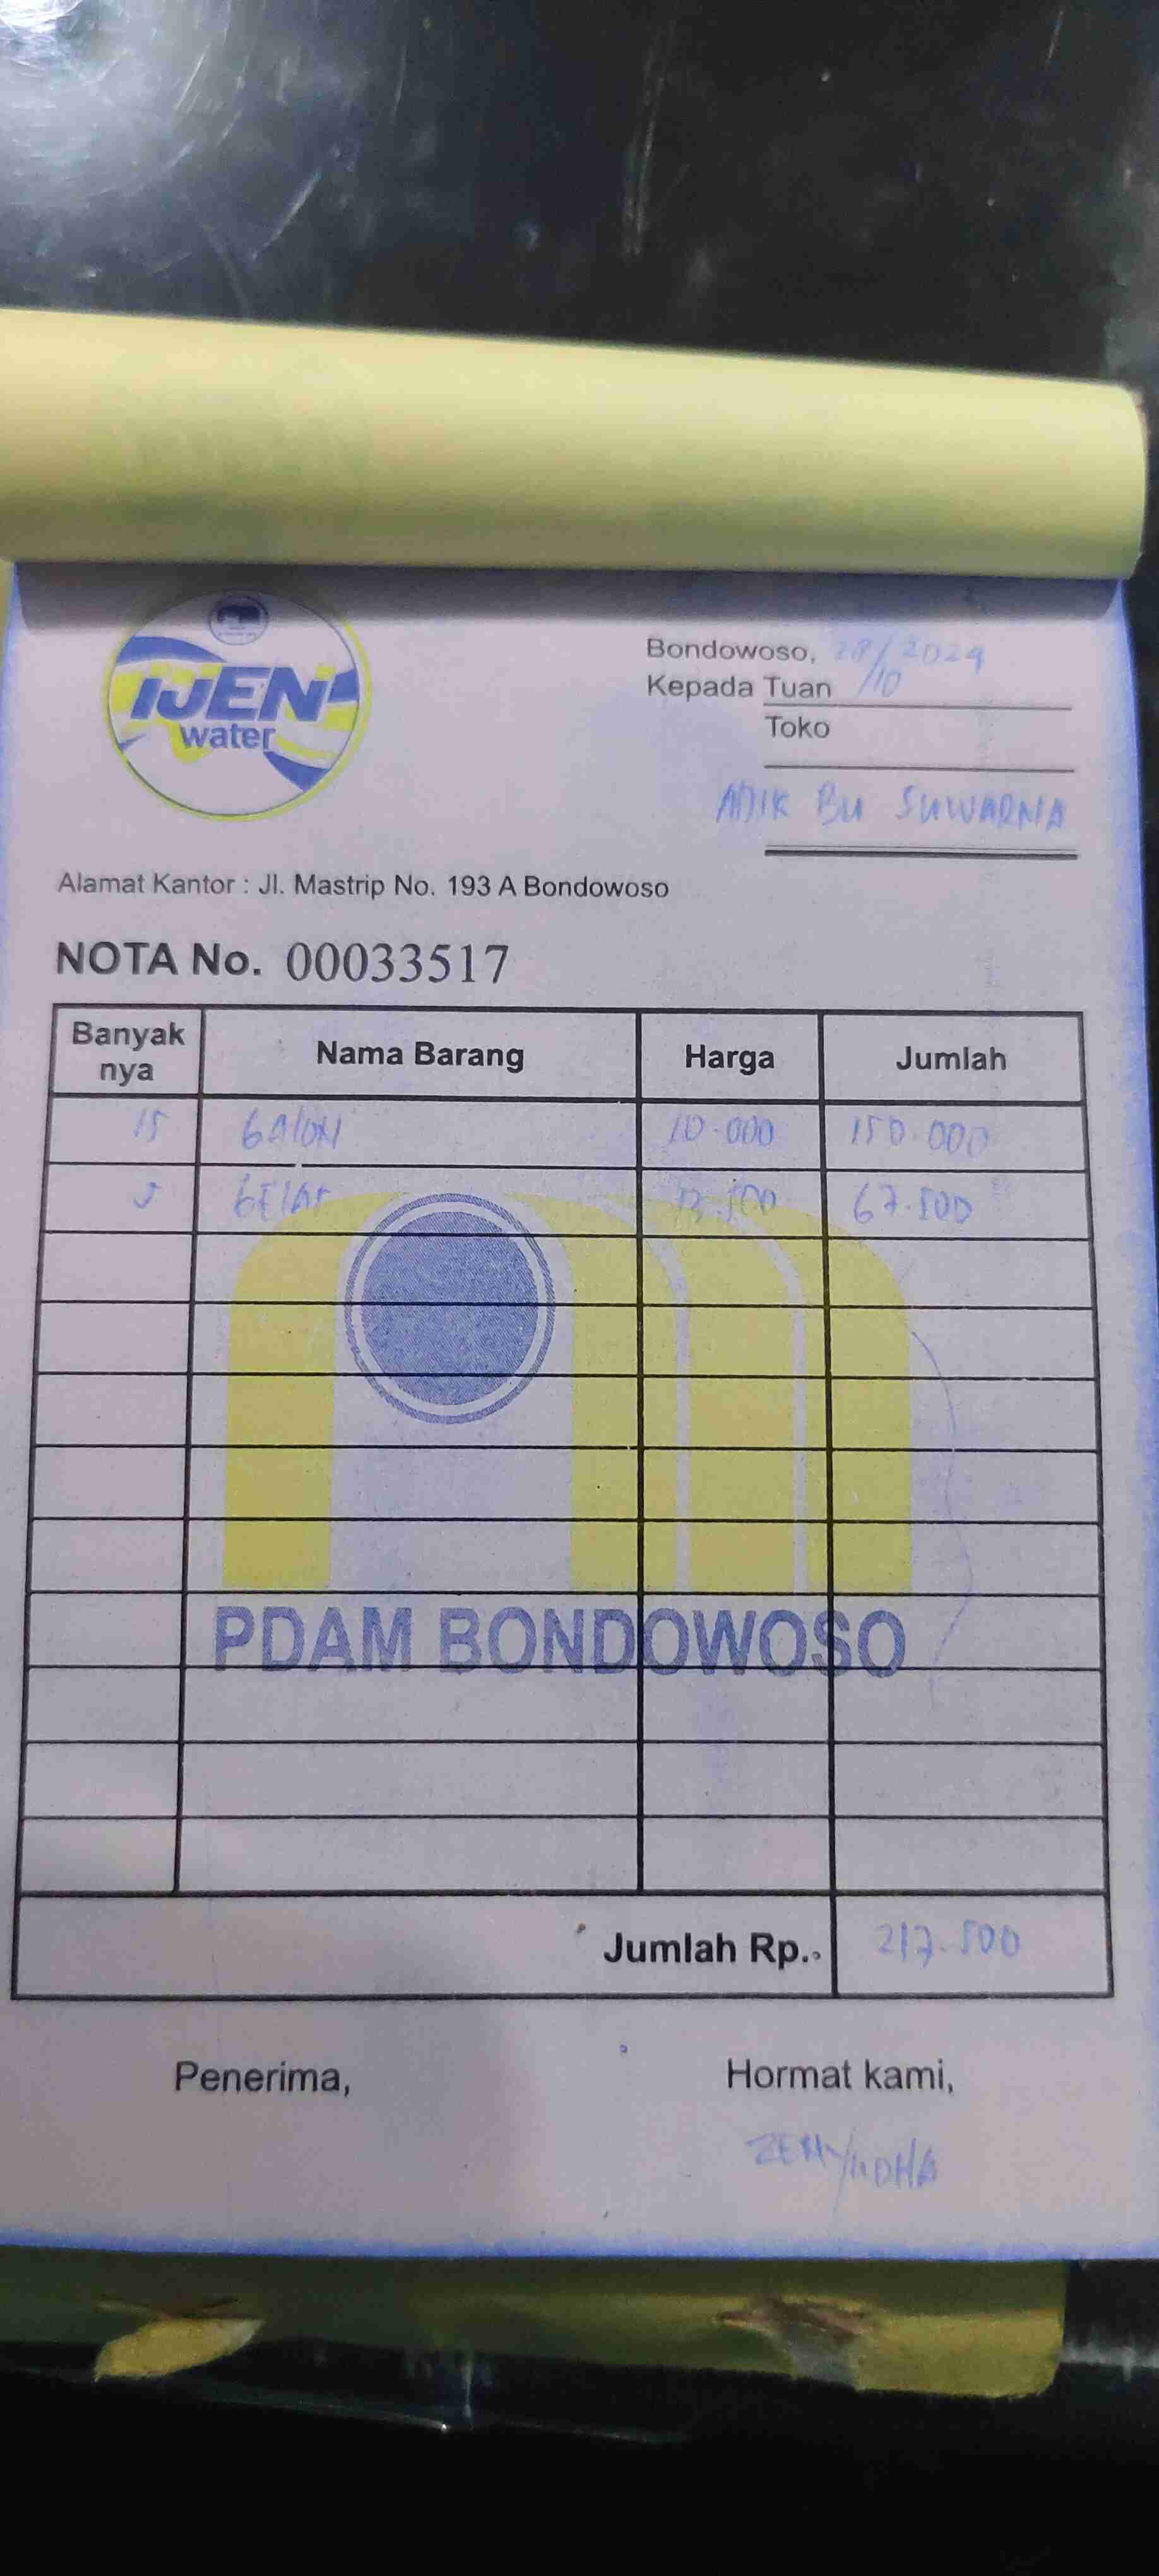 IJEN
water
Bondowoso, 28/10 2024
Kepada Tuan
Toko
ADIK BU SUWARNA
Alamat Kantor : Jl. Mastrip No. 193 A Bondowoso
NOTA No. 00033517
Banyak nya Nama Barang Harga Jumlah
15 GALON 10.000 150.000
5 GELAS 13.500 67.500
PDAM BONDOWOSO
Jumlah Rp. 217.500
Penerima, Hormat kami,